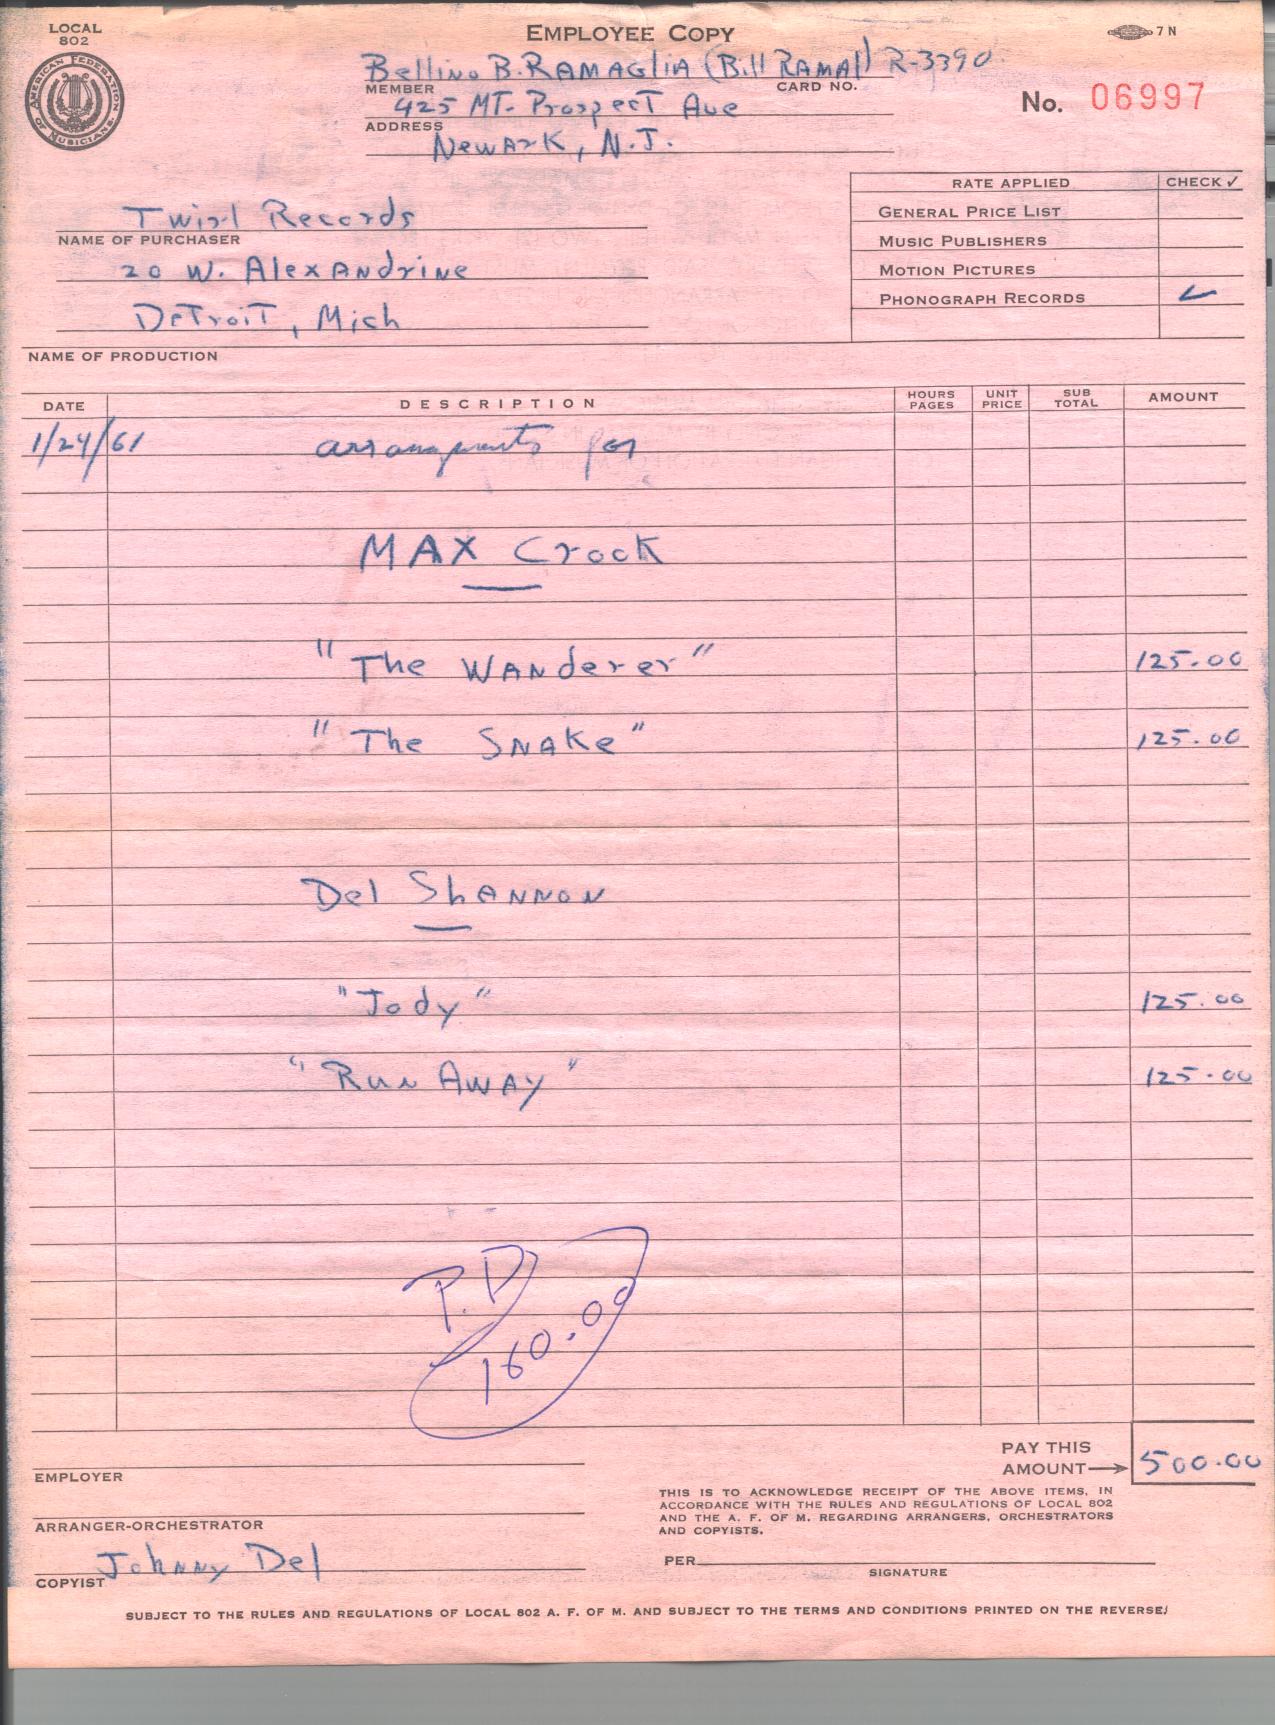 LOCAL
802
EMPLOYEE COPY
7 N
AMERICAN FEDERATION OF MUSICIANS
Bellino B. RAMAGLIA (Bill RAMAL) R-3390
MEMBER CARD NO.
No. 06997
425 MT. Prospect Ave
ADDRESS
Newark, N.J.
RATE APPLIED CHECK ✓
GENERAL PRICE LIST
MUSIC PUBLISHERS
MOTION PICTURES
PHONOGRAPH RECORDS ✓
Twirl Records
NAME OF PURCHASER
20 W. Alexandrine
Detroit, Mich
NAME OF PRODUCTION
DATE DESCRIPTION HOURS PAGES UNIT PRICE SUB TOTAL AMOUNT
1/24/61 arrangements for
MAX Crook
"The Wanderer" 125.00
"The Snake" 125.00
Del Shannon
"Jody" 125.00
"Run Away" 125.00
P.D
160.00
PAY THIS
AMOUNT→ 500.00
EMPLOYER
THIS IS TO ACKNOWLEDGE RECEIPT OF THE ABOVE ITEMS, IN
ACCORDANCE WITH THE RULES AND REGULATIONS OF LOCAL 802
AND THE A. F. OF M. REGARDING ARRANGERS, ORCHESTRATORS
AND COPYISTS.
ARRANGER-ORCHESTRATOR
Johnny Del
COPYIST
PER
SIGNATURE
SUBJECT TO THE RULES AND REGULATIONS OF LOCAL 802 A. F. OF M. AND SUBJECT TO THE TERMS AND CONDITIONS PRINTED ON THE REVERSE